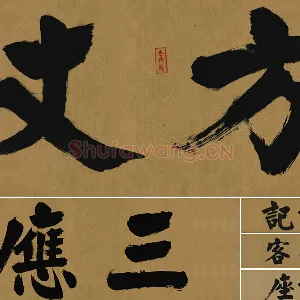 方丈
三應
記
客
座
Shufawang.CN